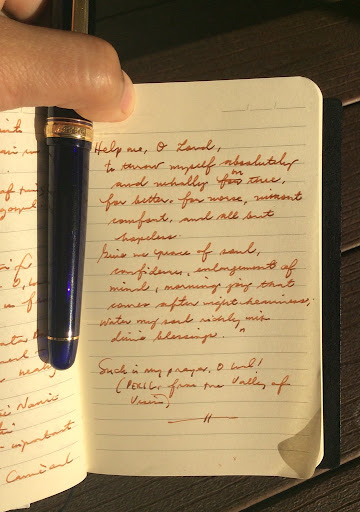 important
Help me, O Lord,
to throw myself absolutely
and wholly on thee,
for better, for worse, without
comfort, and all but
hopeless.
Give me peace of soul,
confidence, enlargement of
mind, morning joy that
comes after night heaviness;
Water my soul richly with
divine blessings. "
Such is my prayer, O Lord!
(PERIL, from the Valley of
Vision)